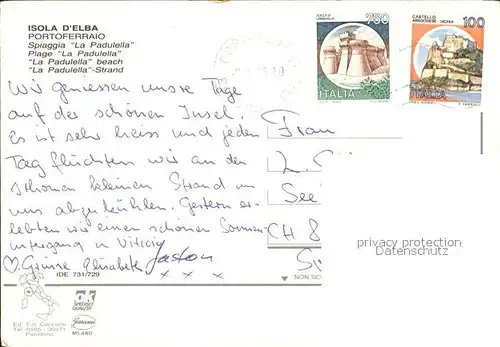 ISOLA D'ELBA
PORTOFERRAIO
Spiaggia "La Padulella"
Plage "La Padulella"
"La Padulella" beach
"La Padulella"-Strand
750
ITALIA
CASTELLO
ARAGONESE - ISCHIA
100
ITALIA
Wir geniessen unsre Tage
auf der schönen Insel.
Es ist sehr heiss und jeden
Tag flüchten wir an den
schönen kleinen Strand um
uns abzukühlen. Gestern er-
lebten wir einen schönen Sonnen-
untergang in
♡ Grüsse Elisabeth
x x x
Frau
L.
See
CH 8
IDE 731/729
privacy protection
Datenschutz
MILANO